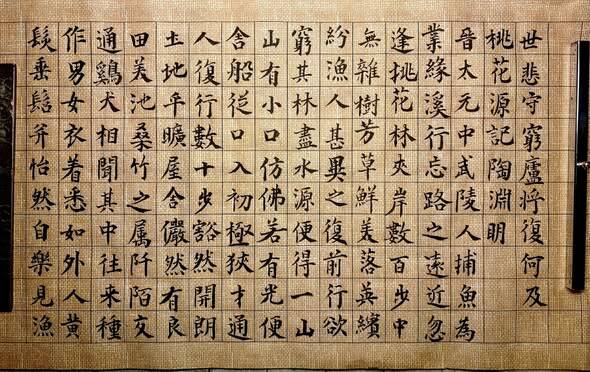 世悲守窮廬將復何及
桃花源記陶淵明
晉太元中武陵人捕魚為
業緣溪行忘路之遠近忽
逢桃花林夾岸數百步中
無雜樹芳草鮮美落英繽
紛漁人甚異之復前行欲
窮其林盡水源便得一山
山有小口仿佛若有光便
舍船從口入初極狹才通
人復行數十步豁然開朗
土地平曠屋舍儼然有良
田美池桑竹之属阡陌交
通鷄犬相聞其中往来種
作男女衣着悉如外人黃
髮垂髫并怡然自樂見漁